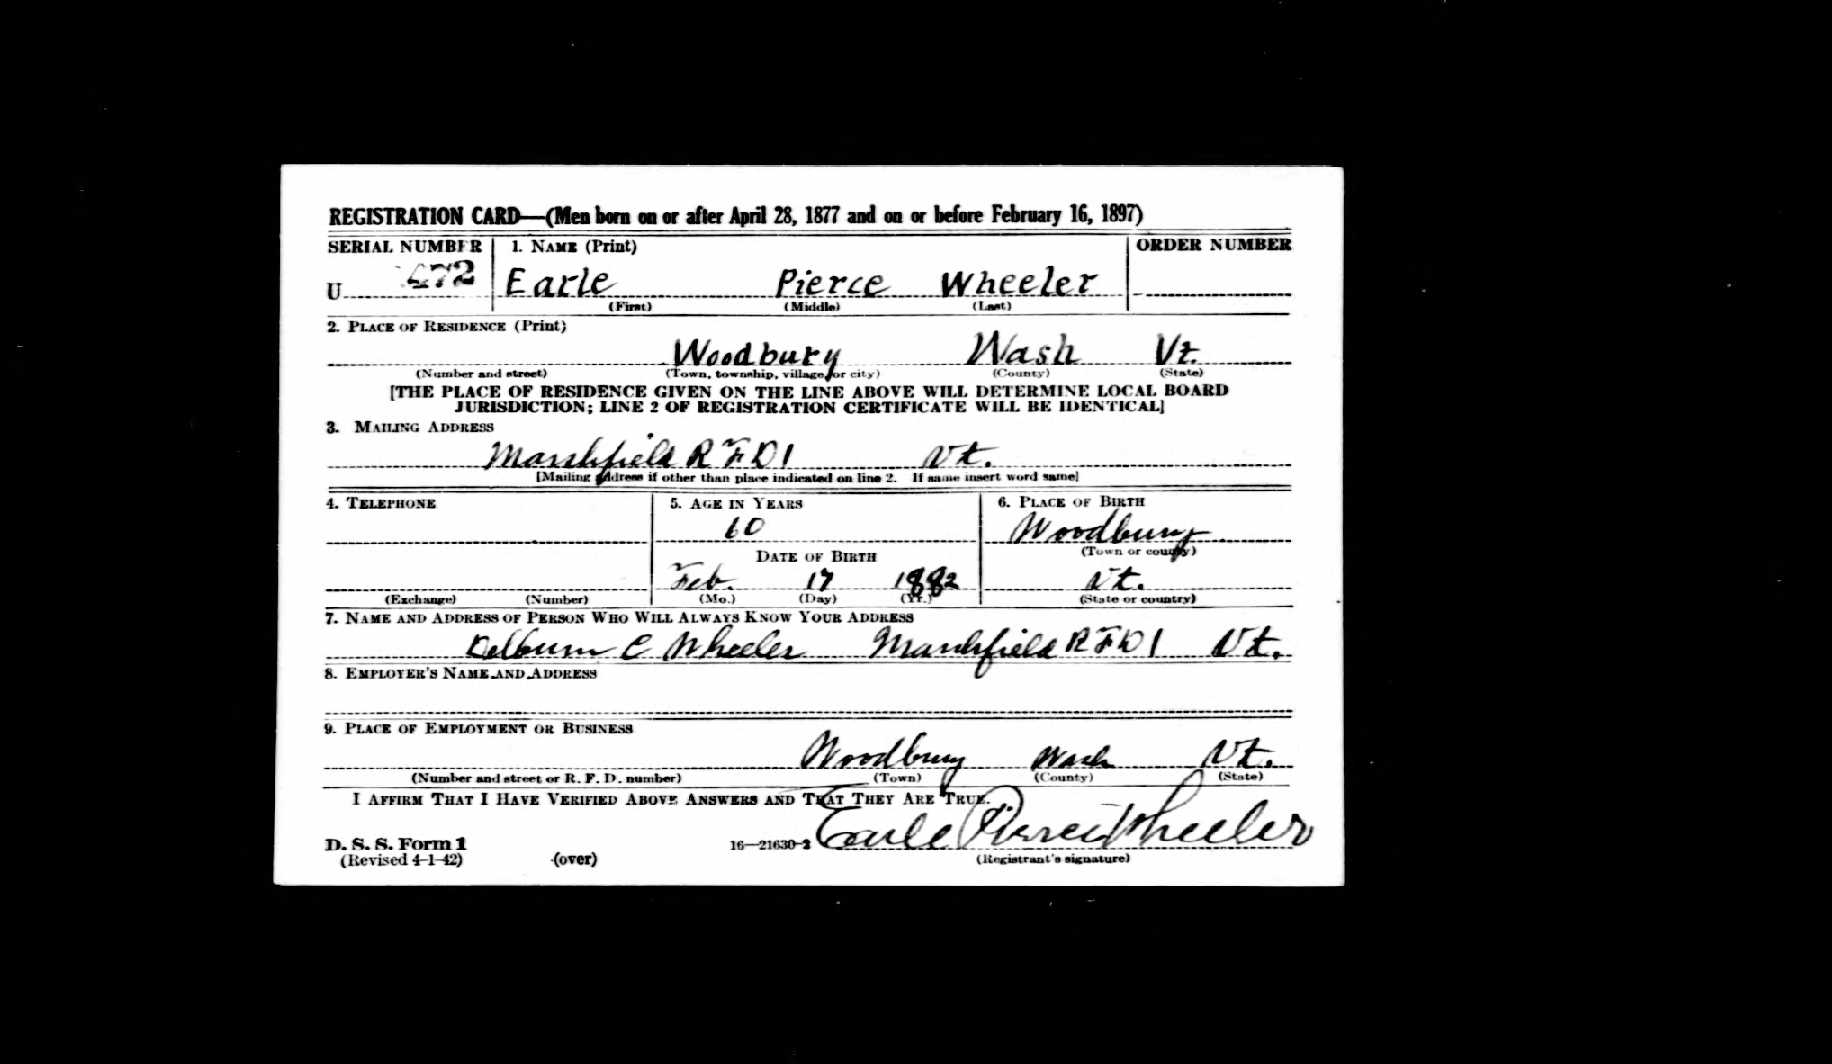 REGISTRATION CARD—(Men born on or after April 28, 1877 and on or before February 16, 1897)
SERIAL NUMBER 1. NAME (Print) ORDER NUMBER
U 472 Earle Pierce Wheeler
(First) (Middle) (Last)
2. PLACE OF RESIDENCE (Print)
Woodbury Wash Vt.
(Number and street) (Town, township, village, or city) (County) (State)
[THE PLACE OF RESIDENCE GIVEN ON THE LINE ABOVE WILL DETERMINE LOCAL BOARD
JURISDICTION; LINE 2 OF REGISTRATION CERTIFICATE WILL BE IDENTICAL]
3. MAILING ADDRESS
Marshfield R F D 1 Vt.
[Mailing address if other than place indicated on line 2. If same insert word same]
4. TELEPHONE 5. AGE IN YEARS 6. PLACE OF BIRTH
60 Woodbury
DATE OF BIRTH (Town or county)
Feb. 17 1882 Vt.
(Exchange) (Number) (Mo.) (Day) (Yr.) (State or country)
7. NAME AND ADDRESS OF PERSON WHO WILL ALWAYS KNOW YOUR ADDRESS
C Wheeler Marshfield R F D 1 Vt.
8. EMPLOYER'S NAME AND ADDRESS
9. PLACE OF EMPLOYMENT OR BUSINESS
Woodbury Wash Vt.
(Number and street or R. F. D. number) (Town) (County) (State)
I AFFIRM THAT I HAVE VERIFIED ABOVE ANSWERS AND THAT THEY ARE TRUE.
Earle Pierce Wheeler
D. S. S. Form 1 16—21630-2
(Revised 4-1-42) (over) (Registrant's signature)